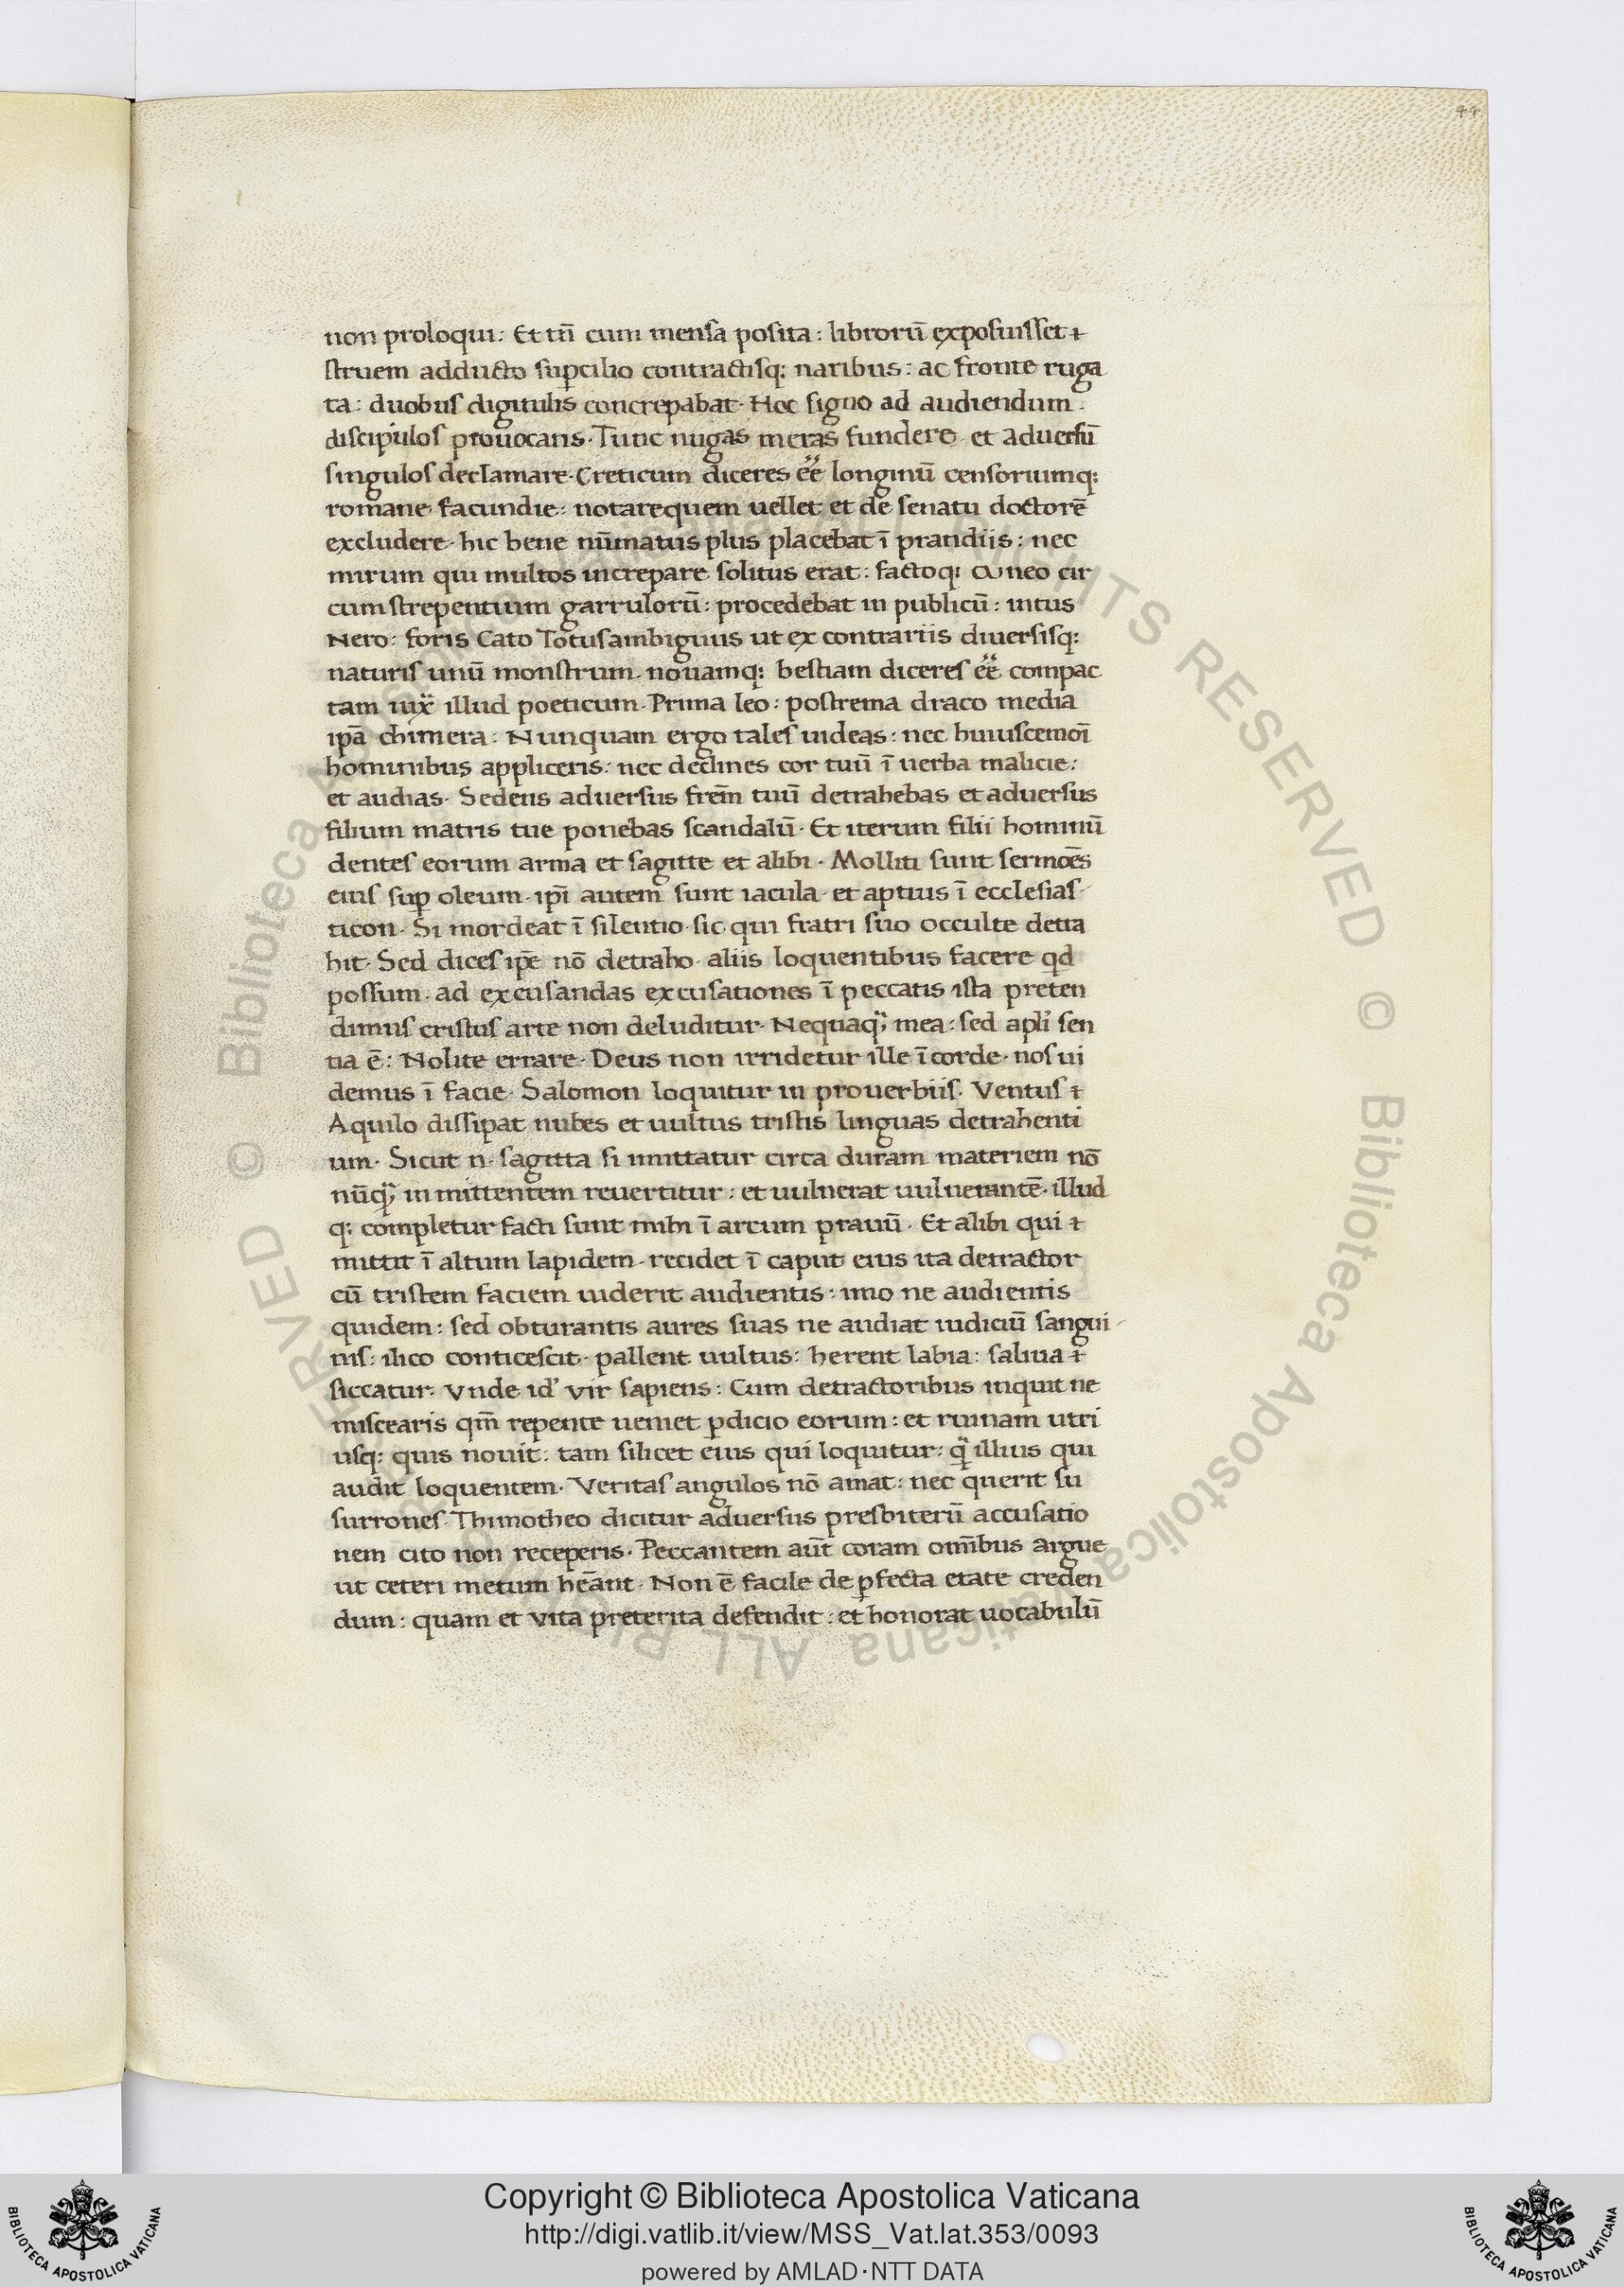 44
non proloqui: Et tn̄ cum mensa posita: librorū exposuisset ⁊
struem adducto suꝑcilio contractisq: naribus: ac fronte ruga
ta: duobus digitulis concrepabat. Hoc signo ad audiendum
discipulos prouocans. Tunc nugas meras fundere et aduersū
singulos declamare. Creticum diceres ēē longinū censoriumq:
romane facundie: notare quem uellet et de senatu doctorē
excludere. hic bene nūmatus plus placebat ī prandiis: nec
mirum qui multos increpare solitus erat: factoq: cuneo cir
cumstrepentium garrulorū: procedebat in publicū: intus
Nero: foris Cato Totus ambiguus ut ex contrariis diuersisq:
naturis unū monstrum nouamq: bestiam diceres ēē compac
tam iux̄ illud poeticum. Prima leo: postrema draco media
ip̄a chimera: Nunquam ergo tales uideas: nec huiuscemoī
hominibus appliceris: nec declines cor tuū ī uerba malicie:
et audias. Sedens aduersus frēm tuū detrahebas et aduersus
filium matris tue ponebas scandalū. Et iterum filii hominū
dentes eorum arma et sagitte et alibi. Molliti sunt sermōes
eius suꝑ oleum. ip̄i autem sunt iacula et aptius ī ecclesias
ticon. Si mordeat ī silentio sic qui fratri suo occulte detra
hit. Sed dices ip̄e nō detraho aliis loquentibus facere qd
possum. ad excusandas excusationes ī peccatis ista preten
dimus cristus arte non deluditur. Nequaq̄; mea: sed apl̄i sen
tia ē: Nolite errare. Deus non irridetur ille ī corde. nos ui
demus ī facie. Salomon loquitur in prouerbiis. Ventus ⁊
Aquilo dissipat nubes et uultus tristis linguas detrahenti
um. Sicut n. sagitta si mittatur circa duram materiem nō
nūq̄; in mittentem reuertitur: et uulnerat uulnerantē. illud
q: completur facti sunt mihi ī arcum prauū. Et alibi qui ⁊
mittit ī altum lapidem. recidet ī caput eius ita detractor
cū tristem faciem uiderit audientis: imo ne audientis
quidem: sed obturantis aures suas ne audiat iudiciū sangui
nis: ilico conticescit. pallent uultus: herent labia: saliua ⁊
siccatur. Vnde id' vir sapiens: Cum detractoribus inquit ne
miscearis qm̄ repente ueniet ꝑdicio eorum: et ruinam utri
usq: quis nouit: tam silicet eius qui loquitur: q̄ illius qui
audit loquentem. Veritas angulos nō amat: nec querit su
surrones. Thimotheo dicitur aduersus presbiterū accusatio
nem cito non receperis. Peccantem aūt coram omībus argue
ut ceteri metum hēant. Non ē facile de ꝑfecta etate creden
dum: quam et vita preterita defendit: et honorat uocabulū
Copyright © Biblioteca Apostolica Vaticana
http://digi.vatlib.it/view/MSS_Vat.lat.353/0093
powered by AMLAD·NTT DATA
BIBLIOTECA APOSTOLICA VATICANA
BIBLIOTECA APOSTOLICA VATICANA